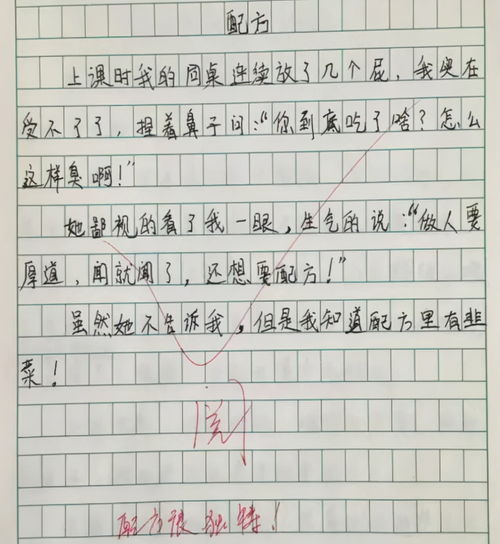 配方
上课时我的同桌连续放了几个屁，我实在
受不了了，捏着鼻子问：“你到底吃了啥？怎么
这样臭啊！”
她鄙视的看了我一眼，生气的说：“做人要
厚道，闻就闻了，还想要配方！”
虽然她不告诉我，但是我知道配方里有韭
菜！
阅
配方很独特！